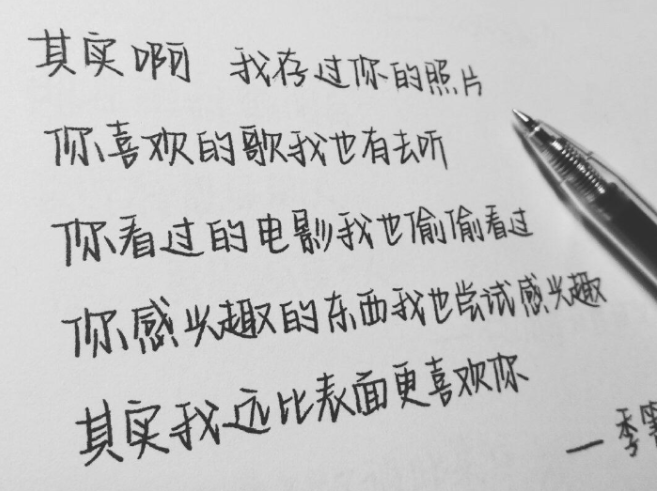 其实啊 我存过你的照片
你喜欢的歌我也有去听
你看过的电影我也偷偷看过
你感兴趣的东西我也尝试感兴趣
其实我远比表面更喜欢你
—季